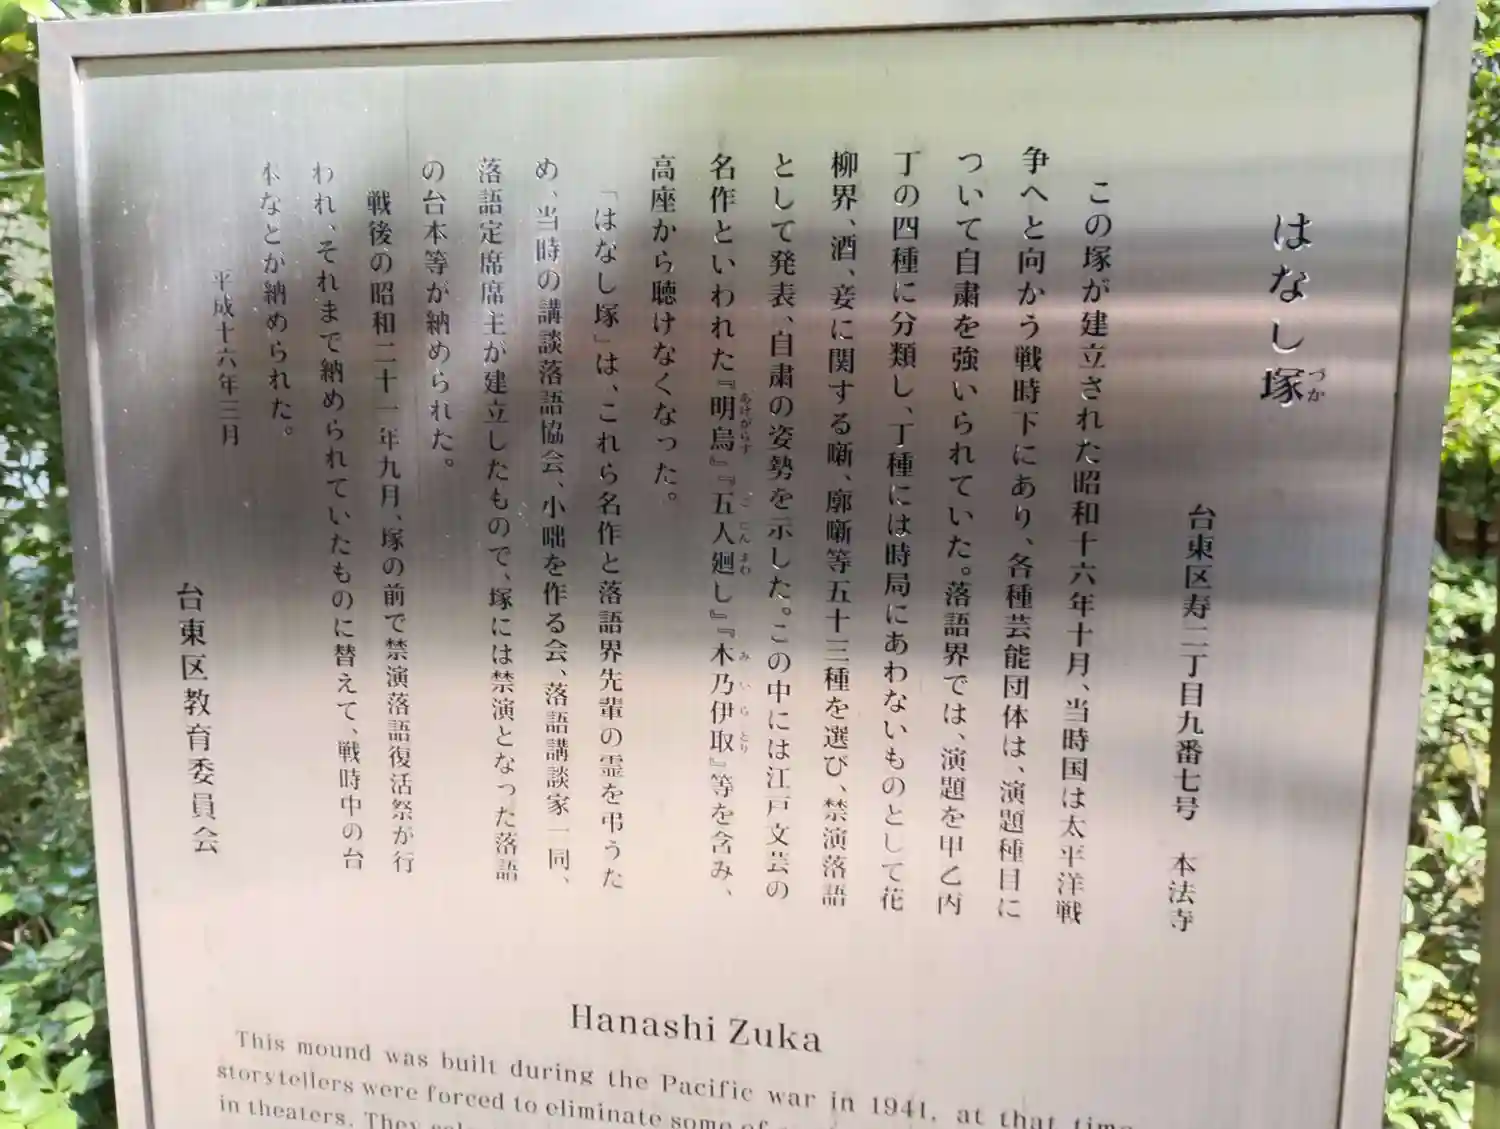 はなし塚
づか
台東区寿二丁目九番七号　本法寺
この塚が建立された昭和十六年十月、当時国は太平洋戦
争へと向かう戦時下にあり、各種芸能団体は、演題種目に
ついて自粛を強いられていた。落語界では、演題を甲乙丙
丁の四種に分類し、丁種には時局にあわないものとして花
柳界、酒、妾に関する噺、廓噺等五十三種を選び、禁演落語
として発表、自粛の姿勢を示した。この中には江戸文芸の
名作といわれた『明烏』『五人廻し』『木乃伊取』等を含み、
あけがらす
ごにんまわ
みいらとり
高座から聴けなくなった。
「はなし塚」は、これら名作と落語界先輩の霊を弔うた
め、当時の講談落語協会、小咄を作る会、落語講談家一同、
落語定席席主が建立したもので、塚には禁演となった落語
の台本等が納められた。
戦後の昭和二十一年九月、塚の前で禁演落語復活祭が行
われ、それまで納められていたものに替えて、戦時中の台
本などが納められた。
平成十六年三月
台東区教育委員会
Hanashi Zuka
This mound was built during the Pacific war in 1941, at that time
storytellers were forced to eliminate some of
in theaters. They